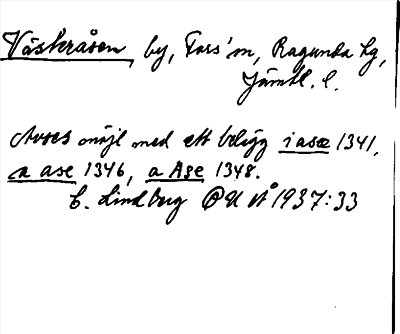 Västeråsen, by, Fors' sn, Ragunda tg,
Jämtl. l.
Avses möjl med ett belägg i asæ 1341,
a ase 1346, a Ase 1348.
C. Lindberg OUÅ 1937:33